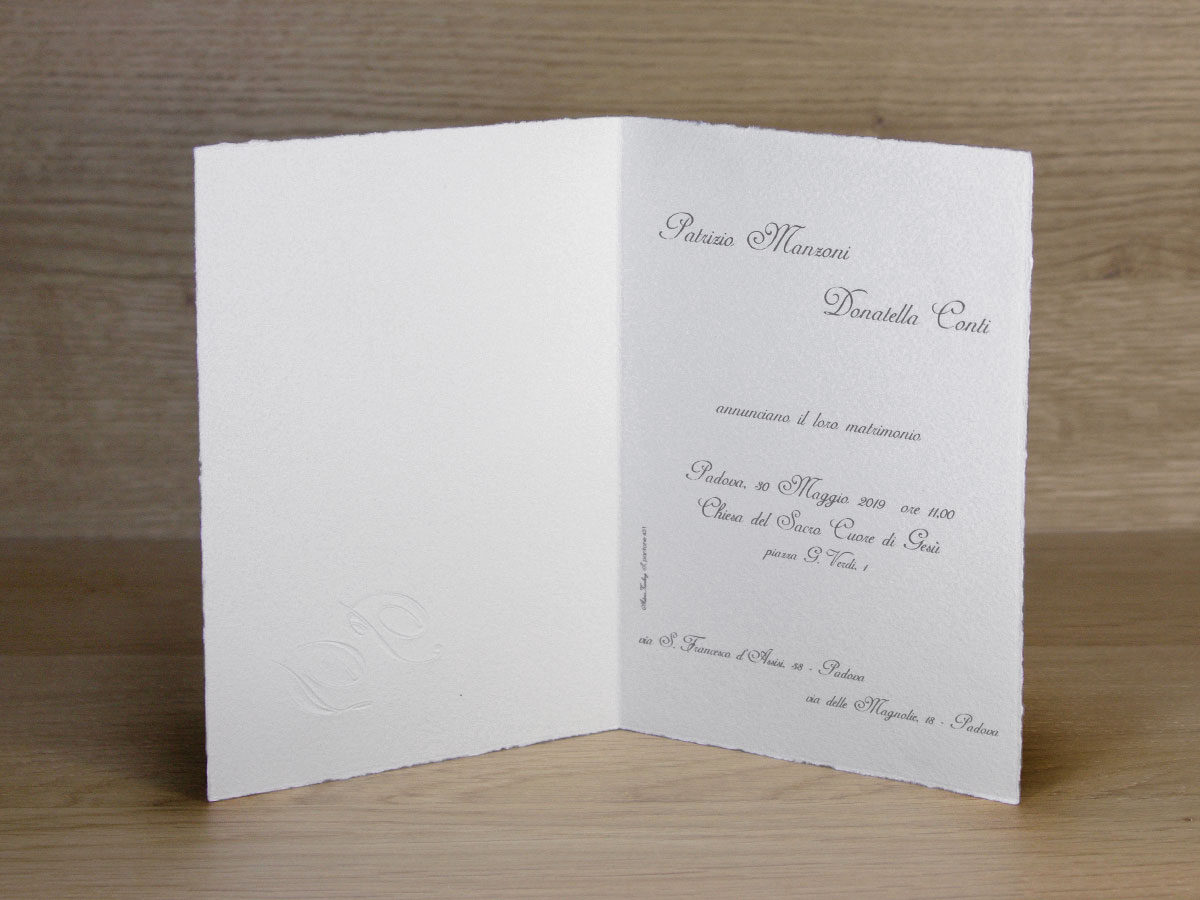 Patrizio Manzoni
Donatella Conti
annunciano il loro matrimonio
Padova, 30 Maggio 2019 ore 11,00
Chiesa del Sacro Cuore di Gesù
piazza G. Verdi, 1
via S. Francesco d'Assisi, 38 - Padova
via delle Magnolie, 18 - Padova